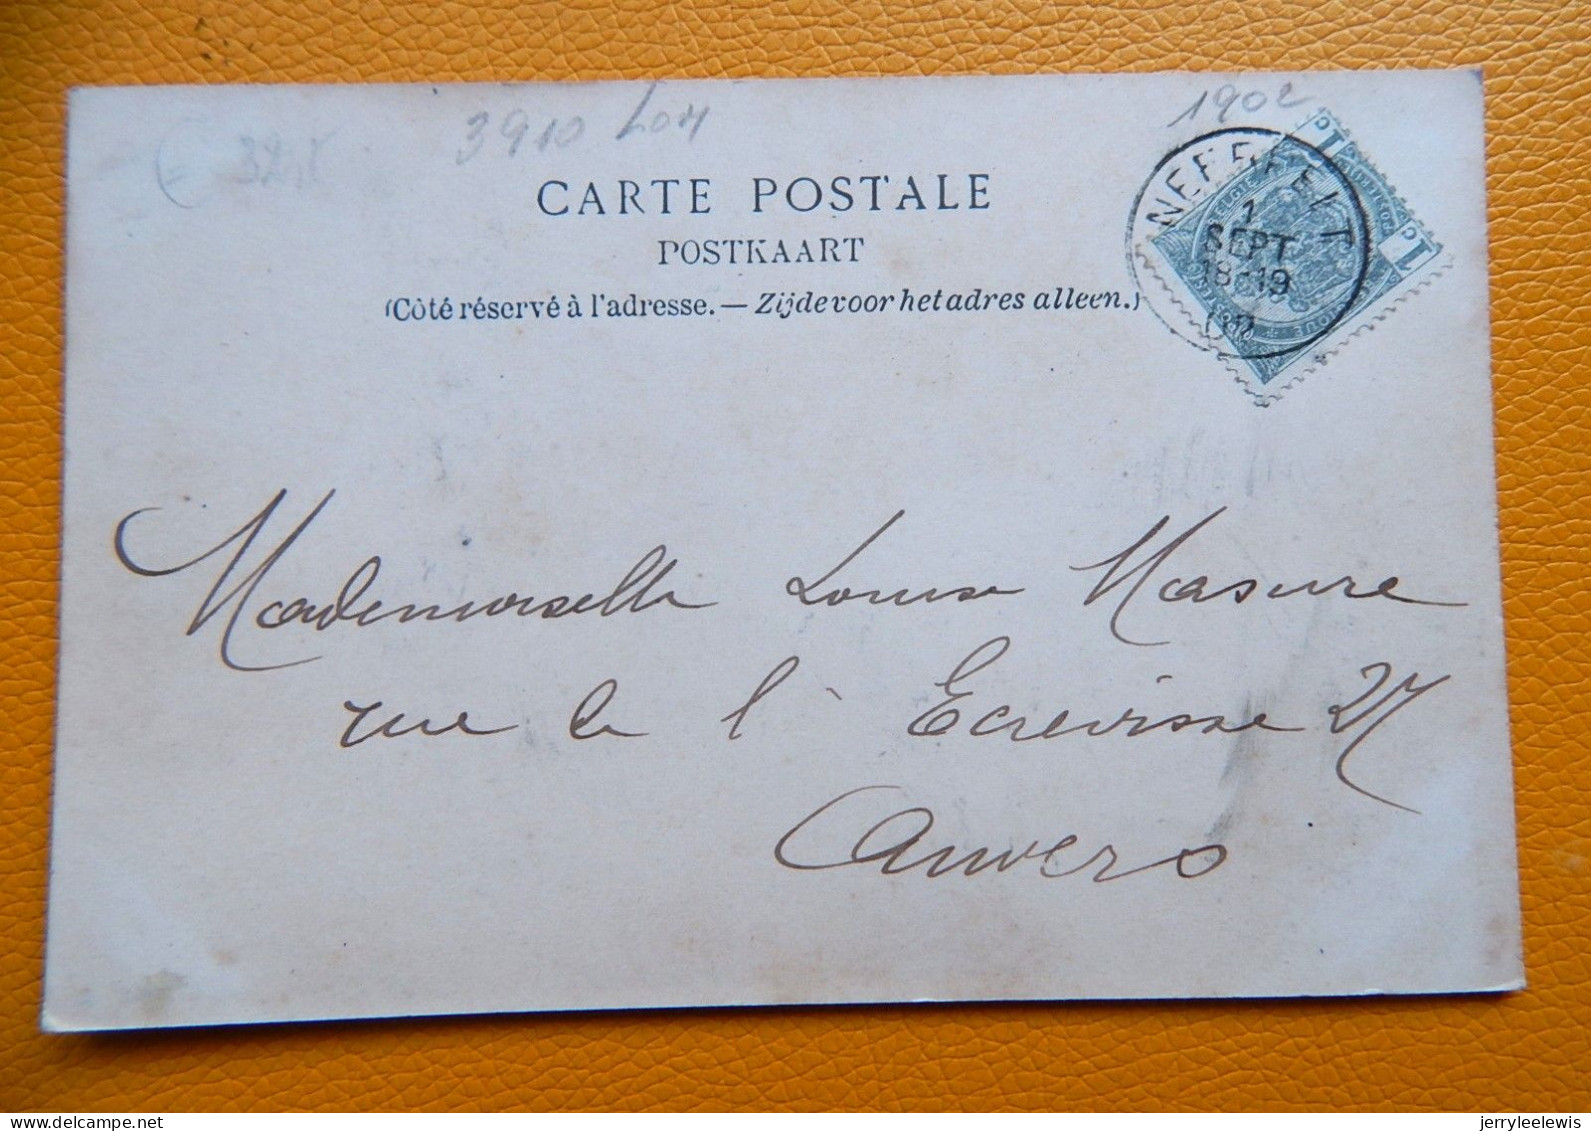 3910 Lom
1902
CARTE POSTALE
POSTKAART
(Côté réservé à l'adresse. — Zijde voor het adres alleen.)
NEERPELT
1
SEPT
18-19
02
Mademoiselle Louise Masure
rue de l' Ecrevisse 27
Anvers
jerryleelewis